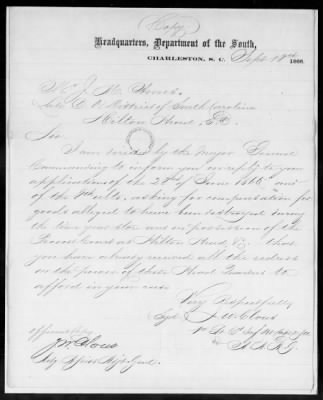 (Copy)
Headquarters, Department of the South,
CHARLESTON, S. C. Sept 18th 1866.
J. M.
District of South Carolina
Hilton Head, S.C.
Sir
I am directed by the Major General
Commanding to inform you in reply to your
application of the 28th of June 1866 and
of the 8th ults, asking for compensation for
goods alleged to have been destroyed during
the late war and in possession of the
Provost Guard at Hilton Head, S.C. that
you have already received all the redress
in the power of these Head Quarters to
afford in your case
Very Respectfully
Sgd J. W. Clous
A. A. A. G.
Official Copy
J. W. Clous